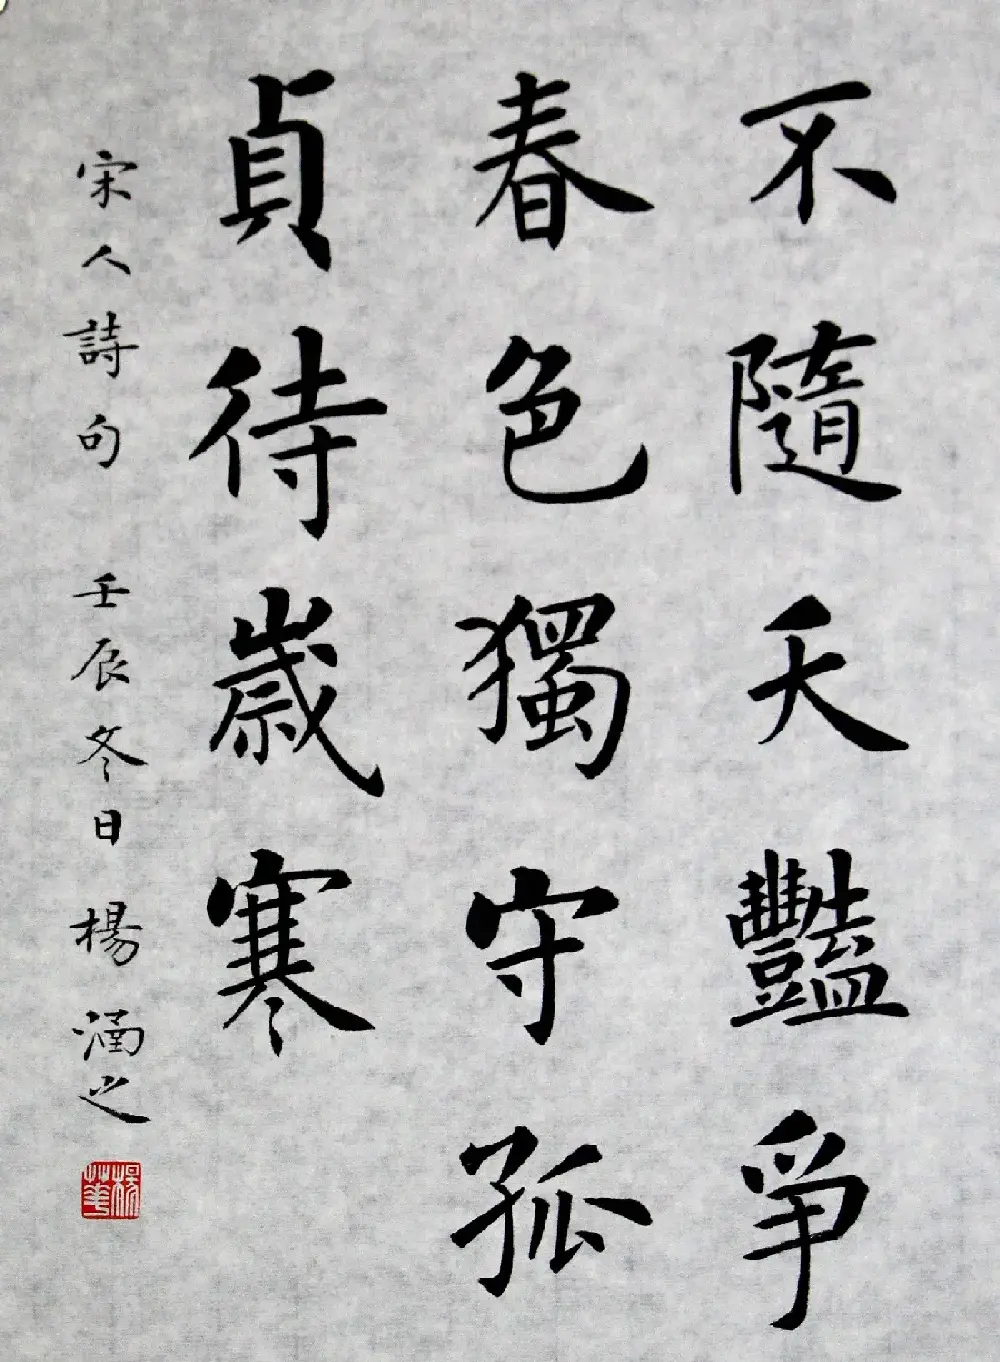 不隨夭豔爭
春色獨守孤
貞待歲寒
宋人詩句 壬辰冬日 楊涵之
楊華